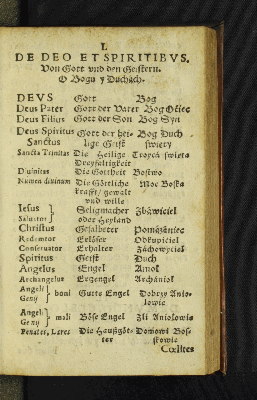 I.
DE DEO ET SPIRITIBVS.
Von Gott vnd den Geistern.
O Bogu y Duchách.
DEVS Gott Bog
Deus Pater Gott der Vater Bog Oćiec
Deus Filius Gott der Son Bog Syn
Deus Spiritus Gott der hei- Bog Duch
Sanctus lige Geist swięty
Sancta Trinitas Die Heilige Troyca swięta
Dreyfaltigkeit
Diuinitas Die Gottheit Bostwo
Numen diuinum Die Göttliche Moc Boska
krafft/ gewalt
vnd wille
Iesus } Seligmacher Zbáwiciel
Saluator } oder Heyland
Christus Gesalbeter Pomázániec
Redemtor Erlöser Odkupiciel
Conseruator Erhalter Záchowyciel
Spiritus Geist Duch
Angelus Engel Anioł
Archangelus Ertzengel Archánioł
Angeli } boni Gutte Engel Dobrzy Anio-
Genij } łowie
Angeli } mali Böse Engel Zli Aniołowie
Genij }
Penates, Lares Die Haußgöt- Domowi Bos-
ter kowie
Cœlites